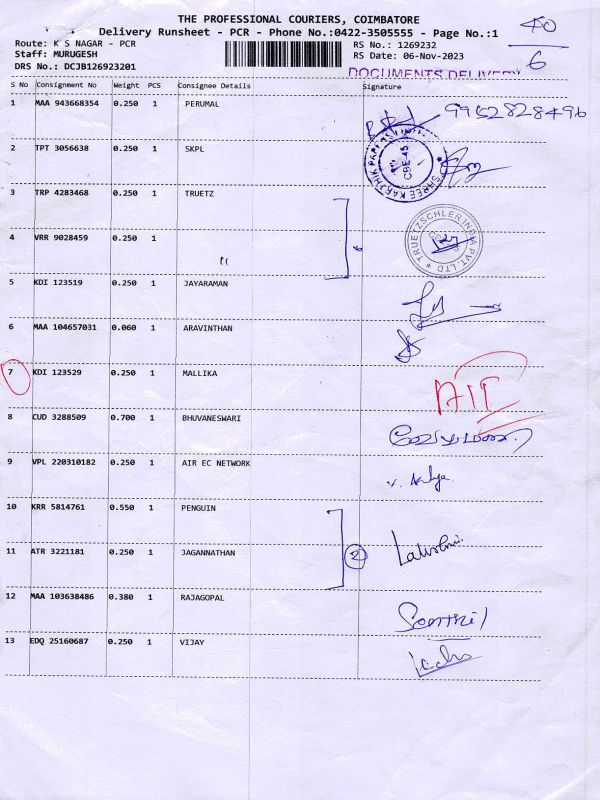 THE PROFESSIONAL COURIERS, COIMBATORE
Delivery Runsheet - PCR - Phone No.:0422-3505555 - Page No.:1
40
6
Route: K S NAGAR - PCR
RS No.: 1269232
Staff: MURUGESH
RS Date: 06-Nov-2023
DRS No.: DCJB126923201
DOCUMENTS DELIVERY
S No Consignment No Weight PCS Consignee Details Signature
1 MAA 943668354 0.250 1 PERUMAL 9952828496
2 TPT 3056638 0.250 1 SKPL
SHREE KARTHIK PAPERS LIMITED
CBE-45
3 TRP 4283468 0.250 1 TRUETZ
TRUETZSCHLER INDIA PVT. LTD
4 VRR 9028459 0.250 1 "
5 KDI 123519 0.250 1 JAYARAMAN
6 MAA 104657031 0.060 1 ARAVINTHAN
7 KDI 123529 0.250 1 MALLIKA
8 CUD 3288509 0.700 1 BHUVANESWARI
9 VPL 220310182 0.250 1 AIR EC NETWORK
10 KRR 5814761 0.550 1 PENGUIN
2
11 ATR 3221181 0.250 1 JAGANNATHAN
12 MAA 103638486 0.380 1 RAJAGOPAL
Senthil
13 EDQ 25160687 0.250 1 VIJAY